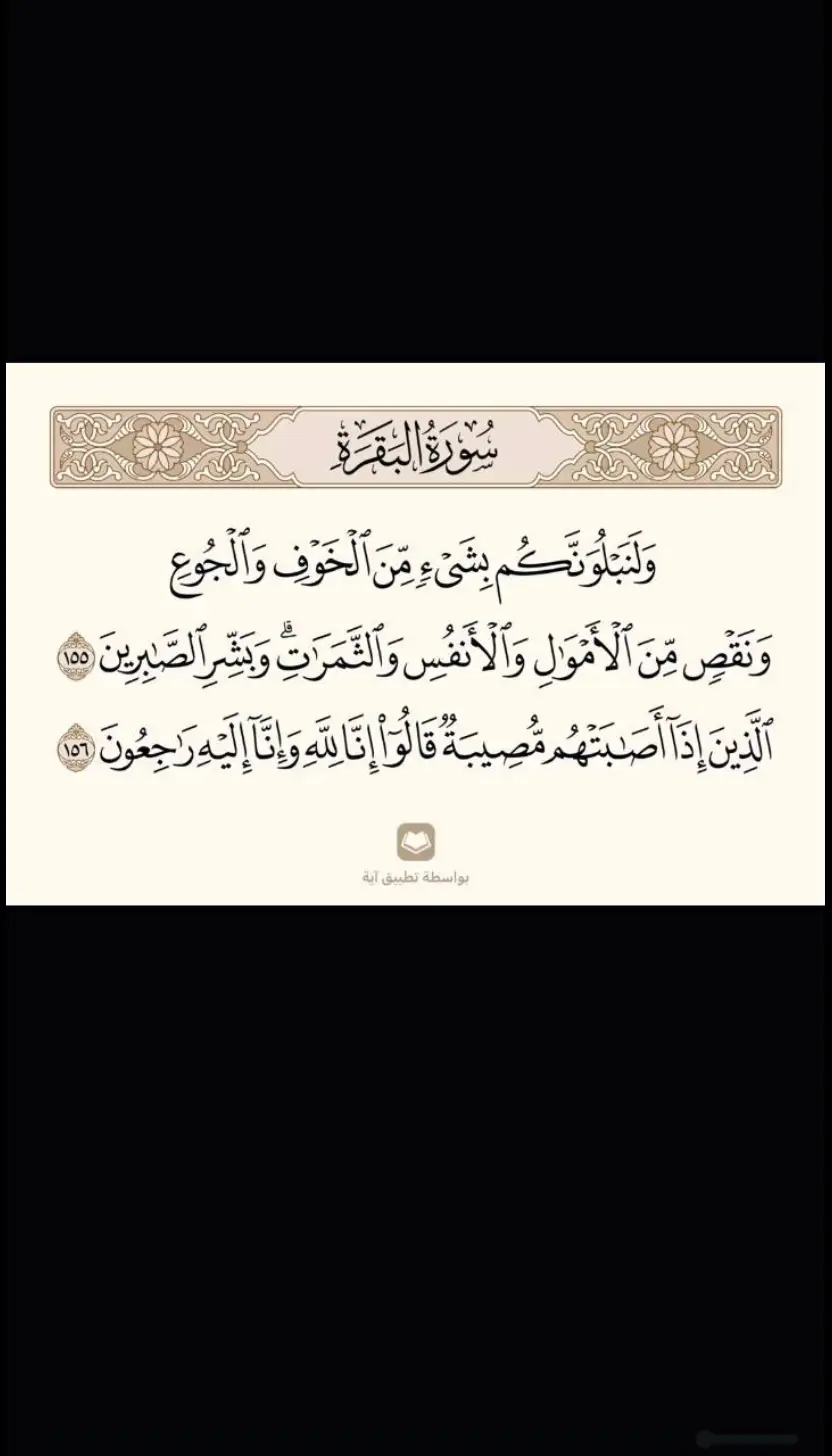 سُورَةُ البَقَرَةِ
وَلَنَبۡلُوَنَّكُم بِشَيۡءٖ مِّنَ ٱلۡخَوۡفِ وَٱلۡجُوعِ
وَنَقۡصٖ مِّنَ ٱلۡأَمۡوَٰلِ وَٱلۡأَنفُسِ وَٱلثَّمَرَٰتِۗ وَبَشِّرِ ٱلصَّٰبِرِينَ ١٥٥
ٱلَّذِينَ إِذَآ أَصَٰبَتۡهُم مُّصِيبَةٞ قَالُوٓاْ إِنَّا لِلَّهِ وَإِنَّآ إِلَيۡهِ رَٰجِعُونَ ١٥٦
بواسطة تطبيق آية